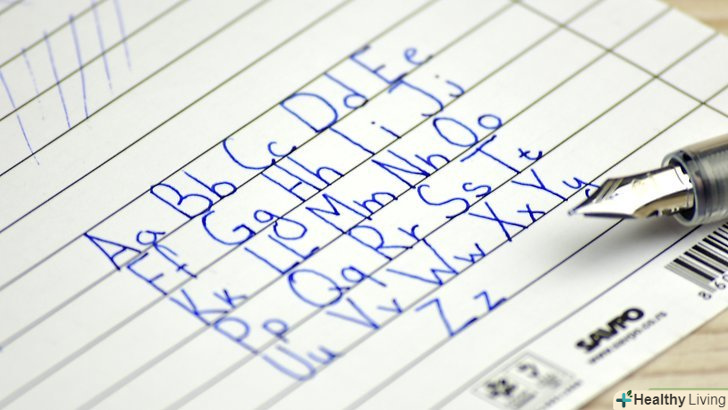 Aa Bb Cc Dd Ee
Ff Gg Hh Ii Jj
Kk Ll Mm Nn Oo
Pp Qq Rr Ss Tt
Uu Vv Ww Xx Yy
Zz
SAVPO
www.savpo.co.rs
Healthy Living